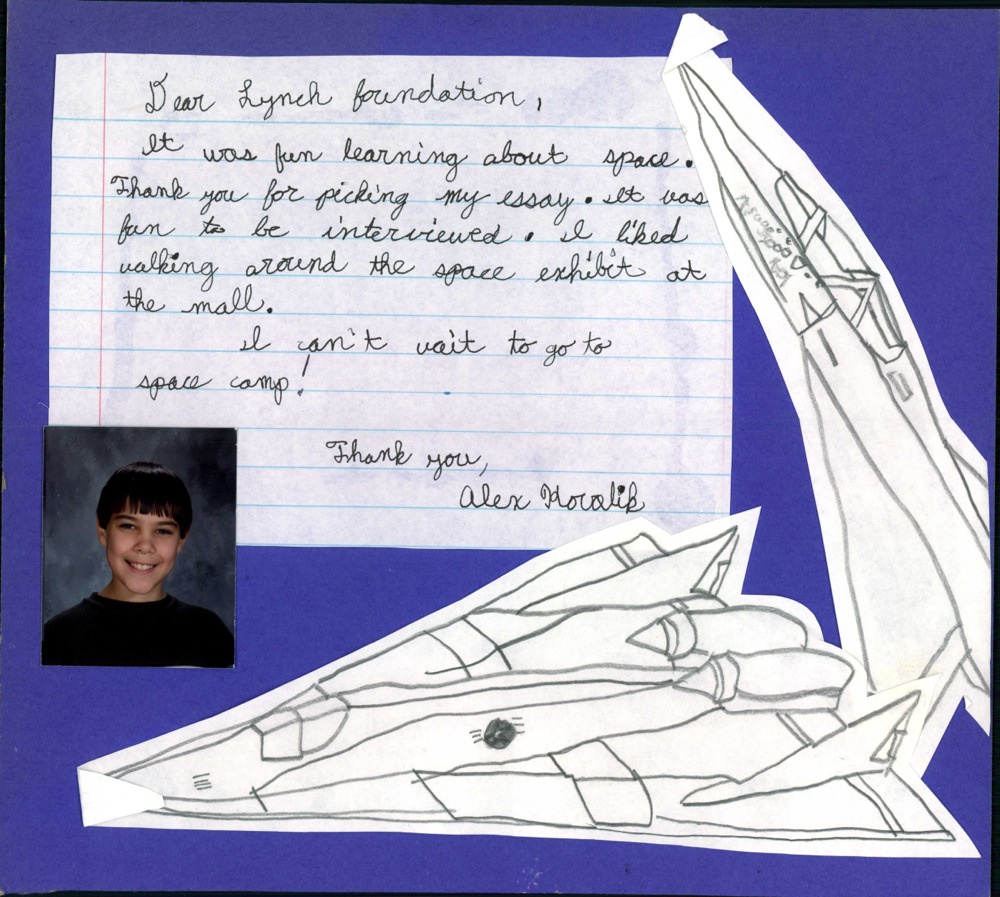 Dear Lynch foundation,
It was fun learning about space.
Thank you for picking my essay. It was
fun to be interviewed. I liked
walking around the space exhibit at
the mall.
I can't wait to go to
space camp!
Thank you,
Alex Kovalik